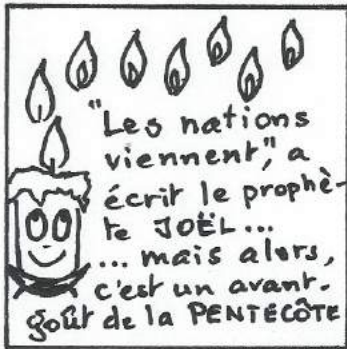 "Les nations
viennent", a
écrit le prophè-
te JOËL...
... mais alors,
c'est un avant-
goût de la PENTECÔTE